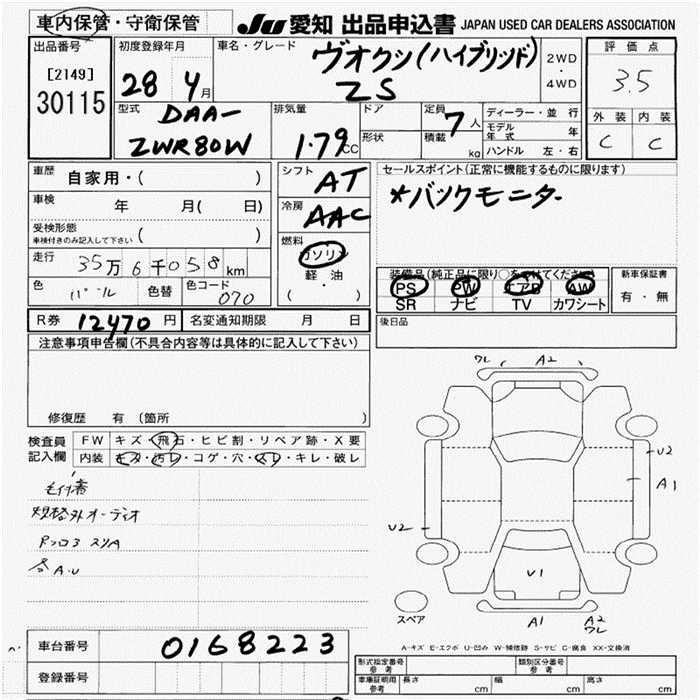 車内保管・守衛保管 JU 愛知 出品申込書 JAPAN USED CAR DEALERS ASSOCIATION
出品番号 初度登録年月 車名・グレード ヴオクシ(ハイブリッド) 2WD・4WD 評価点
[2149] 28 4月 ZS 3.5
30115 型式 DAA- 排気量 ドア 定員 7人 ディーラー・並行 外装 内装
ZWR80W 1.79CC 形状 積載 kg モデル年式 年 C C
ハンドル 左・右
車歴 自家用・( ) シフト AT セールスポイント(正常に機能するものに限ります)
車検 年 月( 日) 冷房 AAC *バックモニター
受検形態 ( )
車検付きのみ記入して下さい
燃料 ガソリン
走行 35万6千058km 軽・油 装備品(純正品に限り○をつけてください) 新車保証書
色 パール 色替 色コード 070 ( ・ ) PS PW エアB AW 有・無
SR ナビ TV カワシート
R券 12470円 名変通知期限 月 日 後日品
注意事項申告欄(不具合内容等は具体的に記入して下さい)
ワレ A2
修復歴 有 (箇所
検査員 FW キズ・飛石・ヒビ割・リペア跡・X要
記入欄 内装 キズ・汚レ・コゲ・穴・スレ・キレ・破レ
U2
A1
規格外オーディオ
U2
各A.U
U1
スペア A1 A2
ワレ
A-キズ E-エクボ U-凹み W-補修跡 S-サビ C-腐食 XX-交換済
車台番号 0168223 形式指定番号 参考 類別区分番号 参考
登録番号 車庫証明用 参考 長さ cm 幅 cm 高さ cm